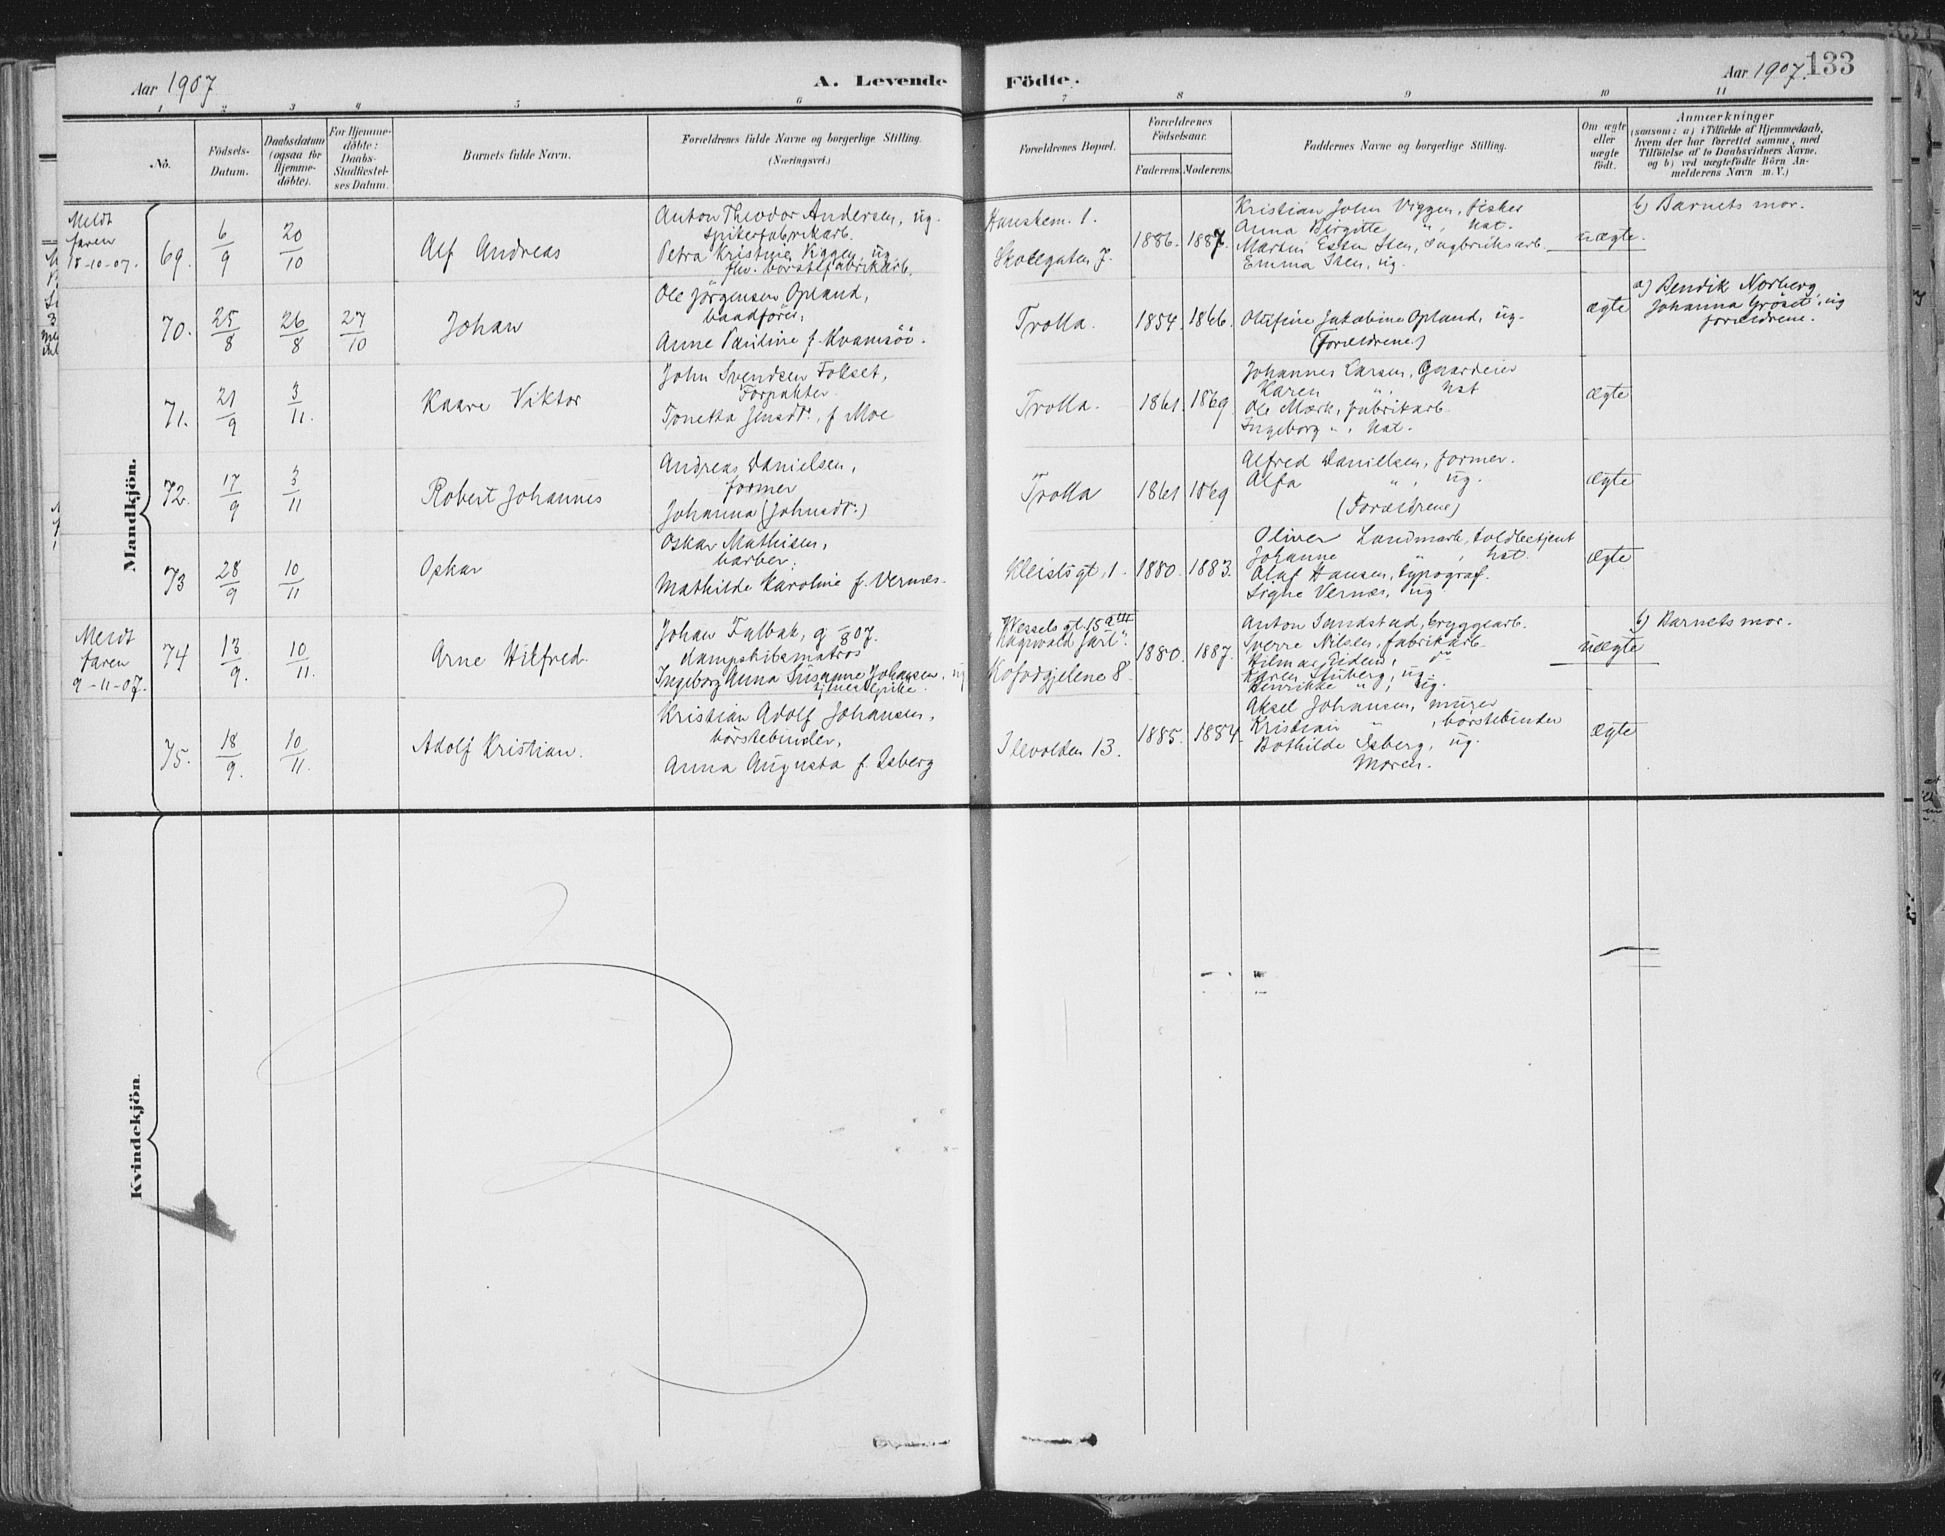 Aar 1907
A. Levende
Födte.
Aar 1907.
133
1 2 3 4 5 6 7 8 9 10 11
No.
Födsels-
Datum.
Daabsdatum
(ogsaa for
Hjemme-
döbte).
For Hjemme-
döbte:
Daabs-
Stadfæstel-
ses Datum.
Barnets fulde Navn.
Forældrenes fulde Navne og borgerlige Stilling.
(Næringsvei.)
Forældrenes Bopæl.
Forældrenes
Födselsaar.
Faderens.
Moderens.
Faddernes Navne og borgerlige Stilling.
Om ægte
eller
uægte
født.
Anmærkninger
(saasom: a) i Tilfælde af Hjemmedaab,
hvem der har forrettet samme, med
Tilföielse af to Daabsvidners Navne,
og b) ved uægtefödte Börn An-
melderens Navn m. V.)
Mandkjön.
Meldt
faren
18-10-07.
69.
6/9
20/10
Alf Andreas
Anton Theodor Andersen, ug.
spigerfabrikarb.
Petra Kristine Viggen, ug.
fhv. børstefabrikarb.
1.
Skolegaten 7.
1886.
1887.
Kristian John Viggen, fisker
Anna Birgitte ", hst.
Emma Sten, ug.
uægte.
b) Barnets mor.
70.
25/8
26/8
27/10
Johan
Ole Jörgensen Opland,
baadfører,
Anne Pauline f. Kvamsöi.
Trolla.
1854.
1866.
Olufine Jakobine Opland, ug.
(forældrene)
ægte
a) Bendik Norberg
Johanna Gröset, ug
forældrene.
71.
21/9
3/11.
Kaare Viktor
John Svendsen Folset,
Forpakter
Tonetta Jensdr., f. Moe
Trolla.
1861.
1869.
Johannes Larsen, Gaardeier
Karen ", hst
Ole Mærk, fabrikarb.
Ingeborg ", hst.
ægte
72.
17/9
3/11
Robert Johannes
Andreas Danielsen,
former
Johanna (Johnsdr.)
Trolla
1861
1869
Alfred Danielsen, former.
Alfa ", ug.
(Forældrene)
ægte
73
28/9
10/11
Oskar
Oskar Mathisen,
barber,
Mathilde Karoline f. Vernæs.
Kleistsgt. 1.
1880.
1883.
Oliver Landmark, toldbetjent
Johanne ", hst.
Olaf Hansen, typograf.
Signe Vernæs, ug
ægte
Meldt
faren
9-11-07.
74
13/9.
10/11.
Arne Hilfred.
Johan Falbak, 9/8 07.
dampskibsmatros
Ingeborg Anna Susanne Johansen, ug
tjenestepike.
Wesselsgt. 15 a
"Ragnvald Jarl".
Kofodgjelene 8.
1880.
1887.
Anton Sandstad, bryggearb.
Sverre Nilsen, fabrikarb.
Karen Stuberg, ug.
Henrikke ", ug.
uægte
b) Barnets mor.
75.
18/9.
10/11.
Adolf Kristian.
Kristian Adolf Johansen,
børstebinder,
Anna Augusta f. Isberg
Ilevolden 13.
1885.
1884.
Aksel Johansen, murer
Kristian ", børstebinder
Bothilde Isberg, ug.
Moren.
ægte
Kvindekjön.